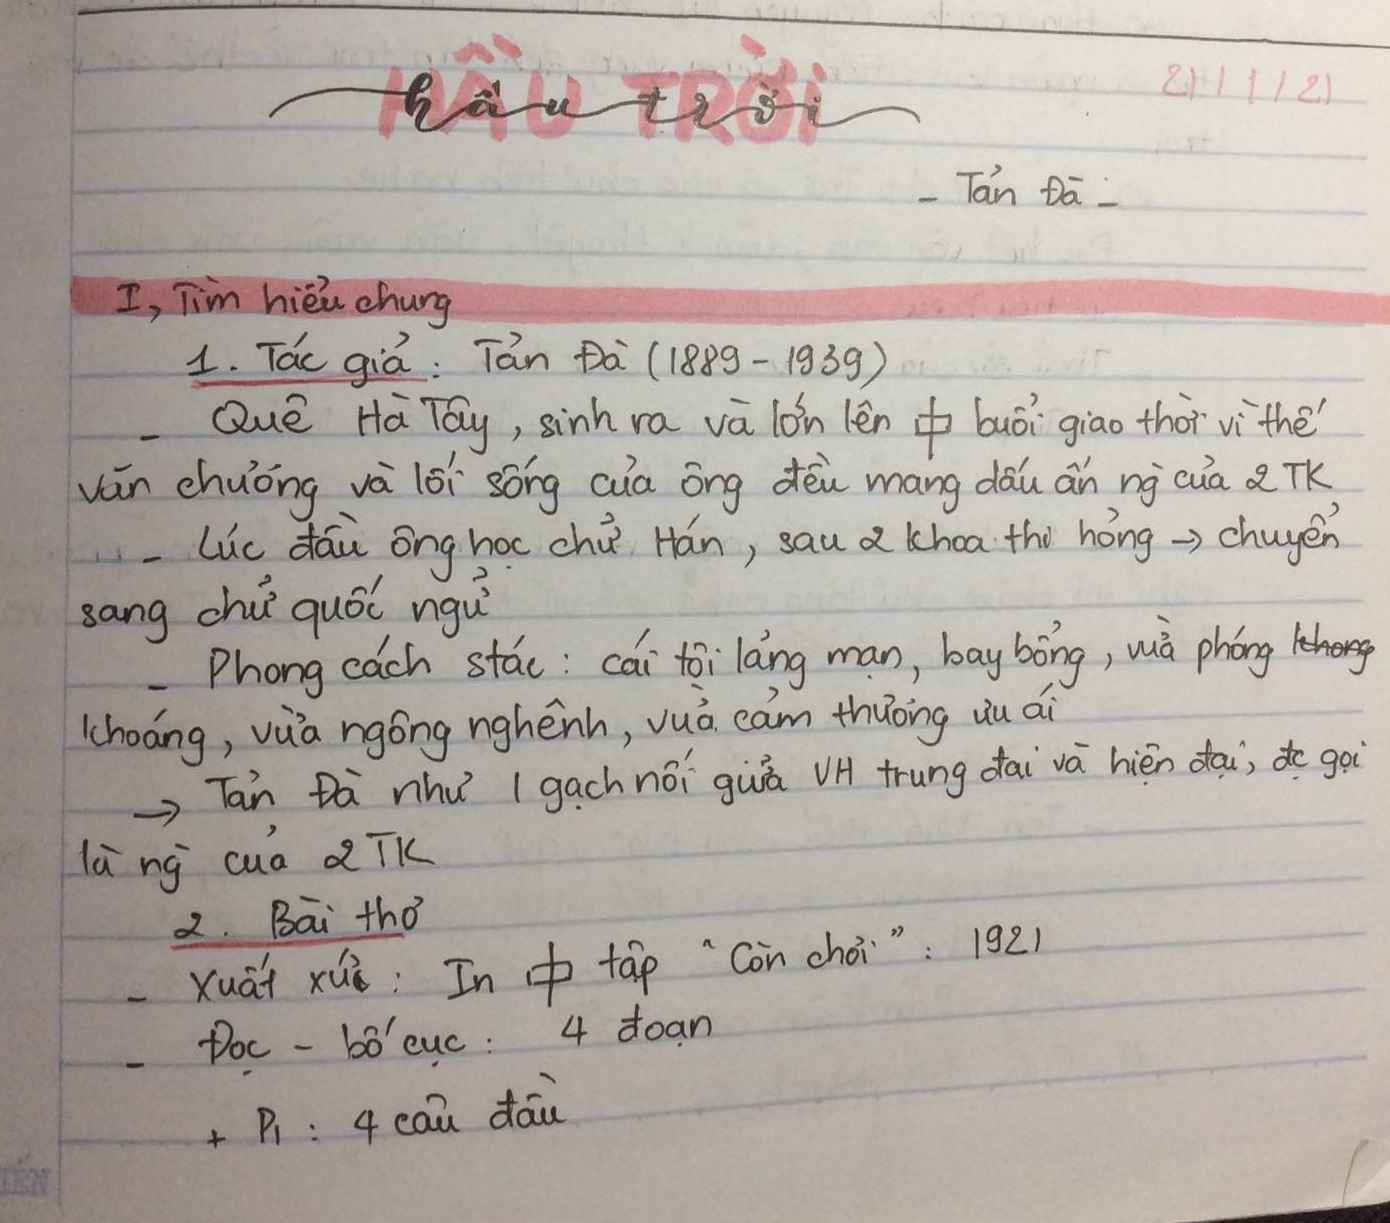 HẦU TRỜI
hầu trời
21/1/21
- Tản Đà -
I, Tìm hiểu chung
1. Tác giả: Tản Đà (1889 - 1939)
- Quê Hà Tây, sinh ra và lớn lên 中 buổi giao thời vì thế
văn chương và lối sống của ông đều mang dấu ấn ng` của 2 TK
- Lúc đầu ông học chữ Hán, sau 2 khoa thi hỏng → chuyển
sang chữ quốc ngữ
- Phong cách stác: cái tôi lãng mạn, bay bổng, vừa phóng khong
khoáng, vừa ngông nghênh, vừa cảm thương ưu ái
→ Tản Đà như 1 gạch nối giữa VH trung đại và hiện đại, đc gọi
là ng` của 2 TK
2. Bài thơ
- Xuất xứ: In 中 tập "Còn chơi": 1921
- Đọc - bố cục: 4 đoạn
+ P1: 4 câu đầu